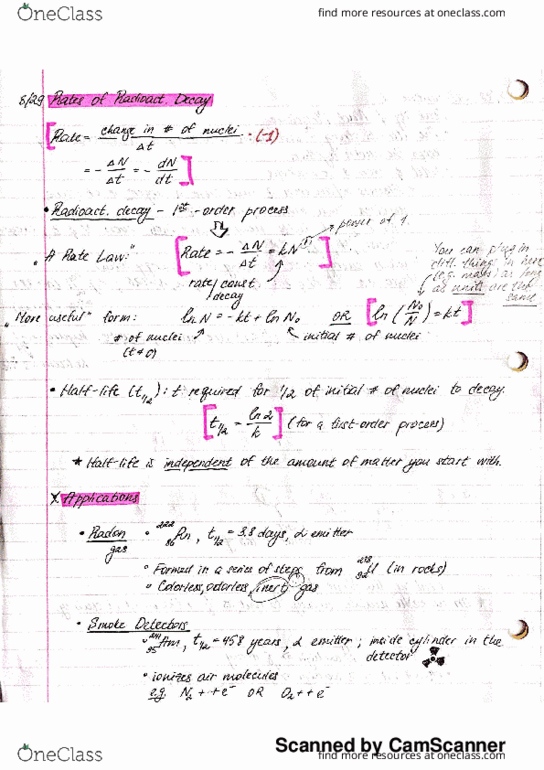 OneClass
find more resources at oneclass.com
8/29 Rates of Radioact. Decay
[Rate = change in # of nuclei / Δt · (-1)
= - ΔN/Δt = - dN/dt ]
• Radioact. decay - 1st - order process
"A Rate Law:" [Rate = - ΔN/Δt = kN^(1) ] → power of 1.
rate/const.
decay
You can plug in
diff. things in here
(e.g. mass) as long
as units are the
same
"More useful" form: ln N = -kt + ln N₀ OR [ln (N₀/N) = kt]
# of nuclei
(t≠0)
initial # of nuclei
• Half-life (t1/2): t required for 1/2 of initial # of nuclei to decay.
[t1/2 = ln 2/k] (for a first-order process)
* Half-life is independent of the amount of matter you start with.
X Applications
• Radon gas • ²²²₈₆Rn, t1/2 = 3.8 days, α emitter
° Formed in a series of steps from ²³⁸₉₂U (in rocks)
° Colorless, odorless, inert gas
• Smoke Detectors
° ²⁴¹₉₅Am, t1/2 = 458 years, α emitter; inside cylinder in the
detector
° ionizes air molecules
e.g. N₂ + + e⁻ OR O₂ + + e⁻
Scanned by CamScanner
OneClass
find more resources at oneclass.com